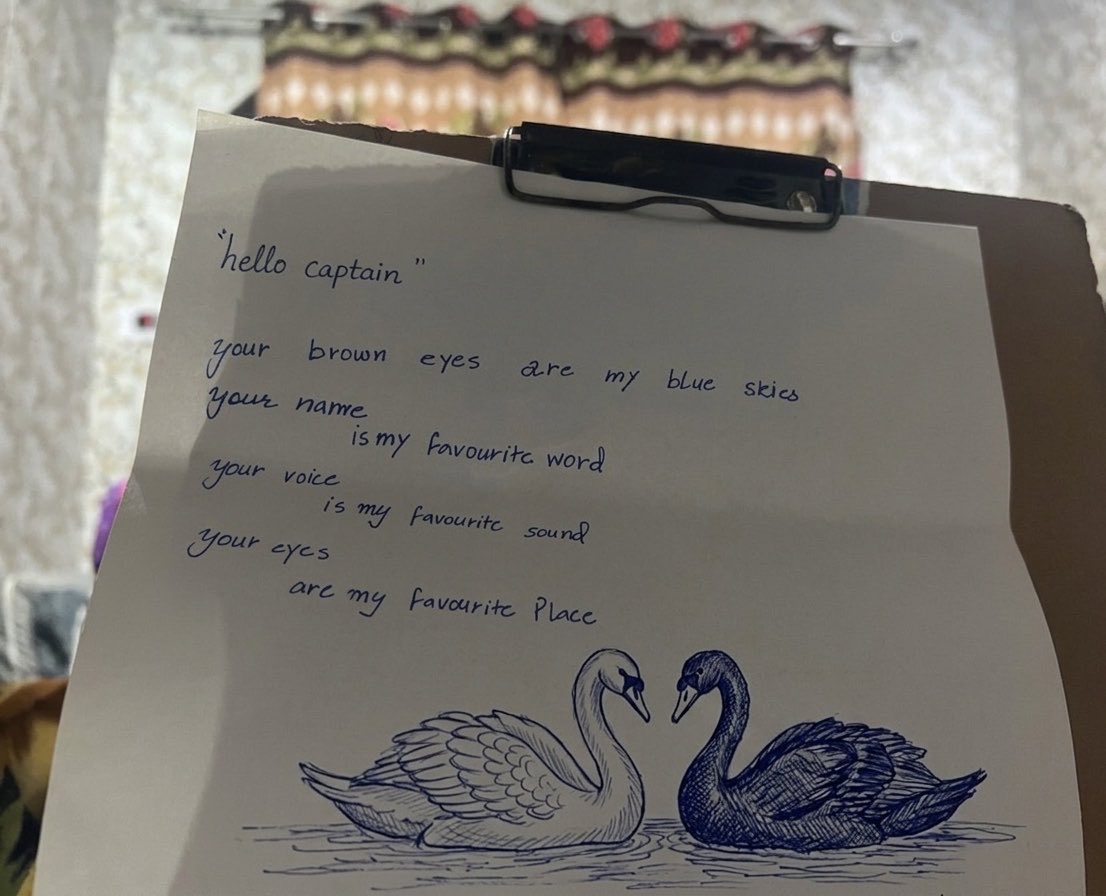 "hello captain"
your brown eyes are my blue skies
your name
is my favourite word
your voice
is my favourite sound
your eyes
are my favourite Place